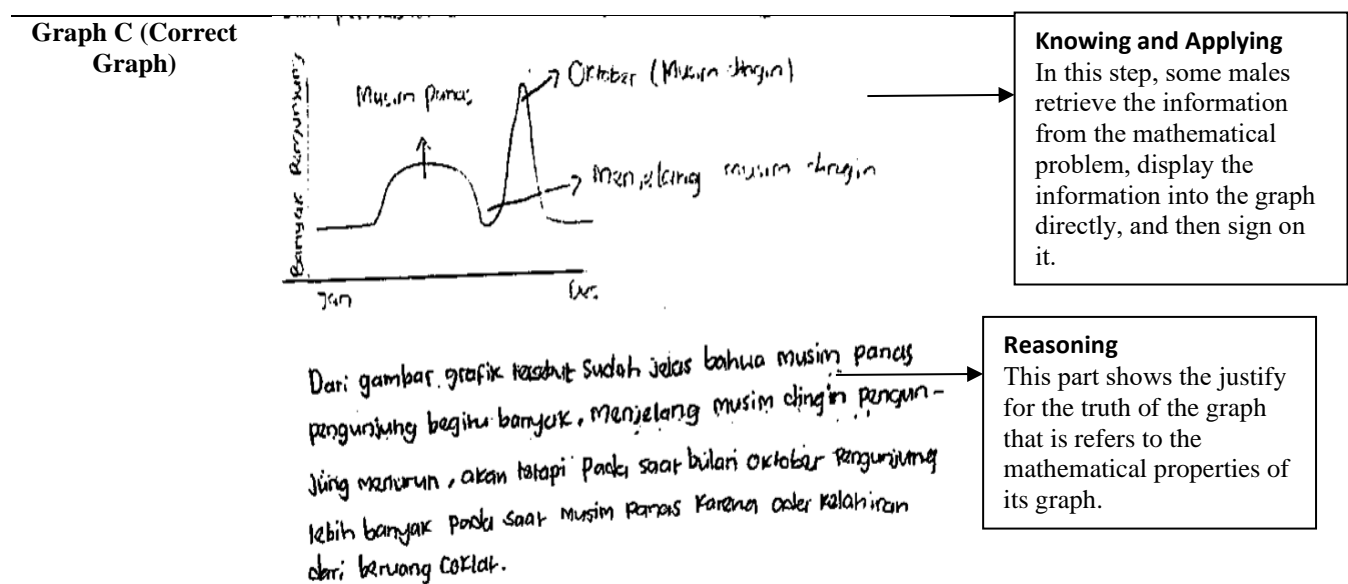 Graph C (Correct
Graph)
Banyak Pengunjung
Musim panas
Oktober (Musim dingin)
Menjelang musim dingin
Jan
Des.
Knowing and Applying
In this step, some males
retrieve the information
from the mathematical
problem, display the
information into the graph
directly, and then sign on
it.
Dari gambar grafik tersebut sudah jelas bahwa musim panas
pengunjung begitu banyak, menjelang musim dingin pengun-
jung menurun, akan tetapi pada saat bulan oktober pengunjung
lebih banyak pada saat musim panas karena kelahiran
dari beruang coklat.
Reasoning
This part shows the justify
for the truth of the graph
that is refers to the
mathematical properties of
its graph.